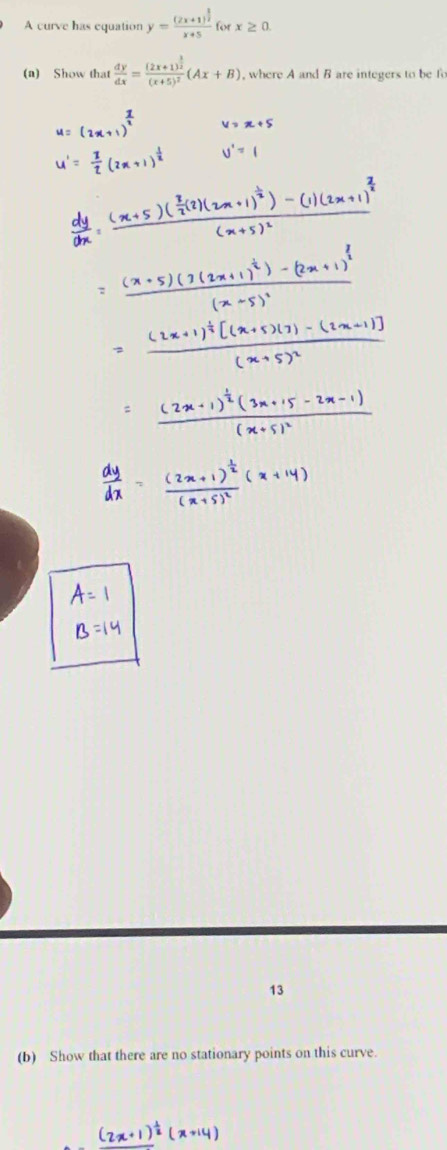 A curve has equation y = (2x+1)^(3/2) / (x+5) for x ≥ 0.
(a) Show that dy/dx = (2x+1)^(1/2) / (x+5)² (Ax + B), where A and B are integers to be
u = (2x+1)^(3/2) v = x+5
u' = 3/2 (2x+1)^(1/2) v' = 1
dy/dx = ((x+5)(3/2(2)(2x+1)^(1/2)) - (1)(2x+1)^(3/2)) / (x+5)²
= ((x+5)(3(2x+1)^(1/2)) - (2x+1)^(3/2)) / (x+5)²
= (2x+1)^(1/2)[(x+5)(3) - (2x+1)] / (x+5)²
= (2x+1)^(1/2)(3x+15-2x-1) / (x+5)²
dy/dx = (2x+1)^(1/2) / (x+5)² (x+14)
A = 1
B = 14
13
(b) Show that there are no stationary points on this curve.
(2x+1)^(1/2) (x+14)